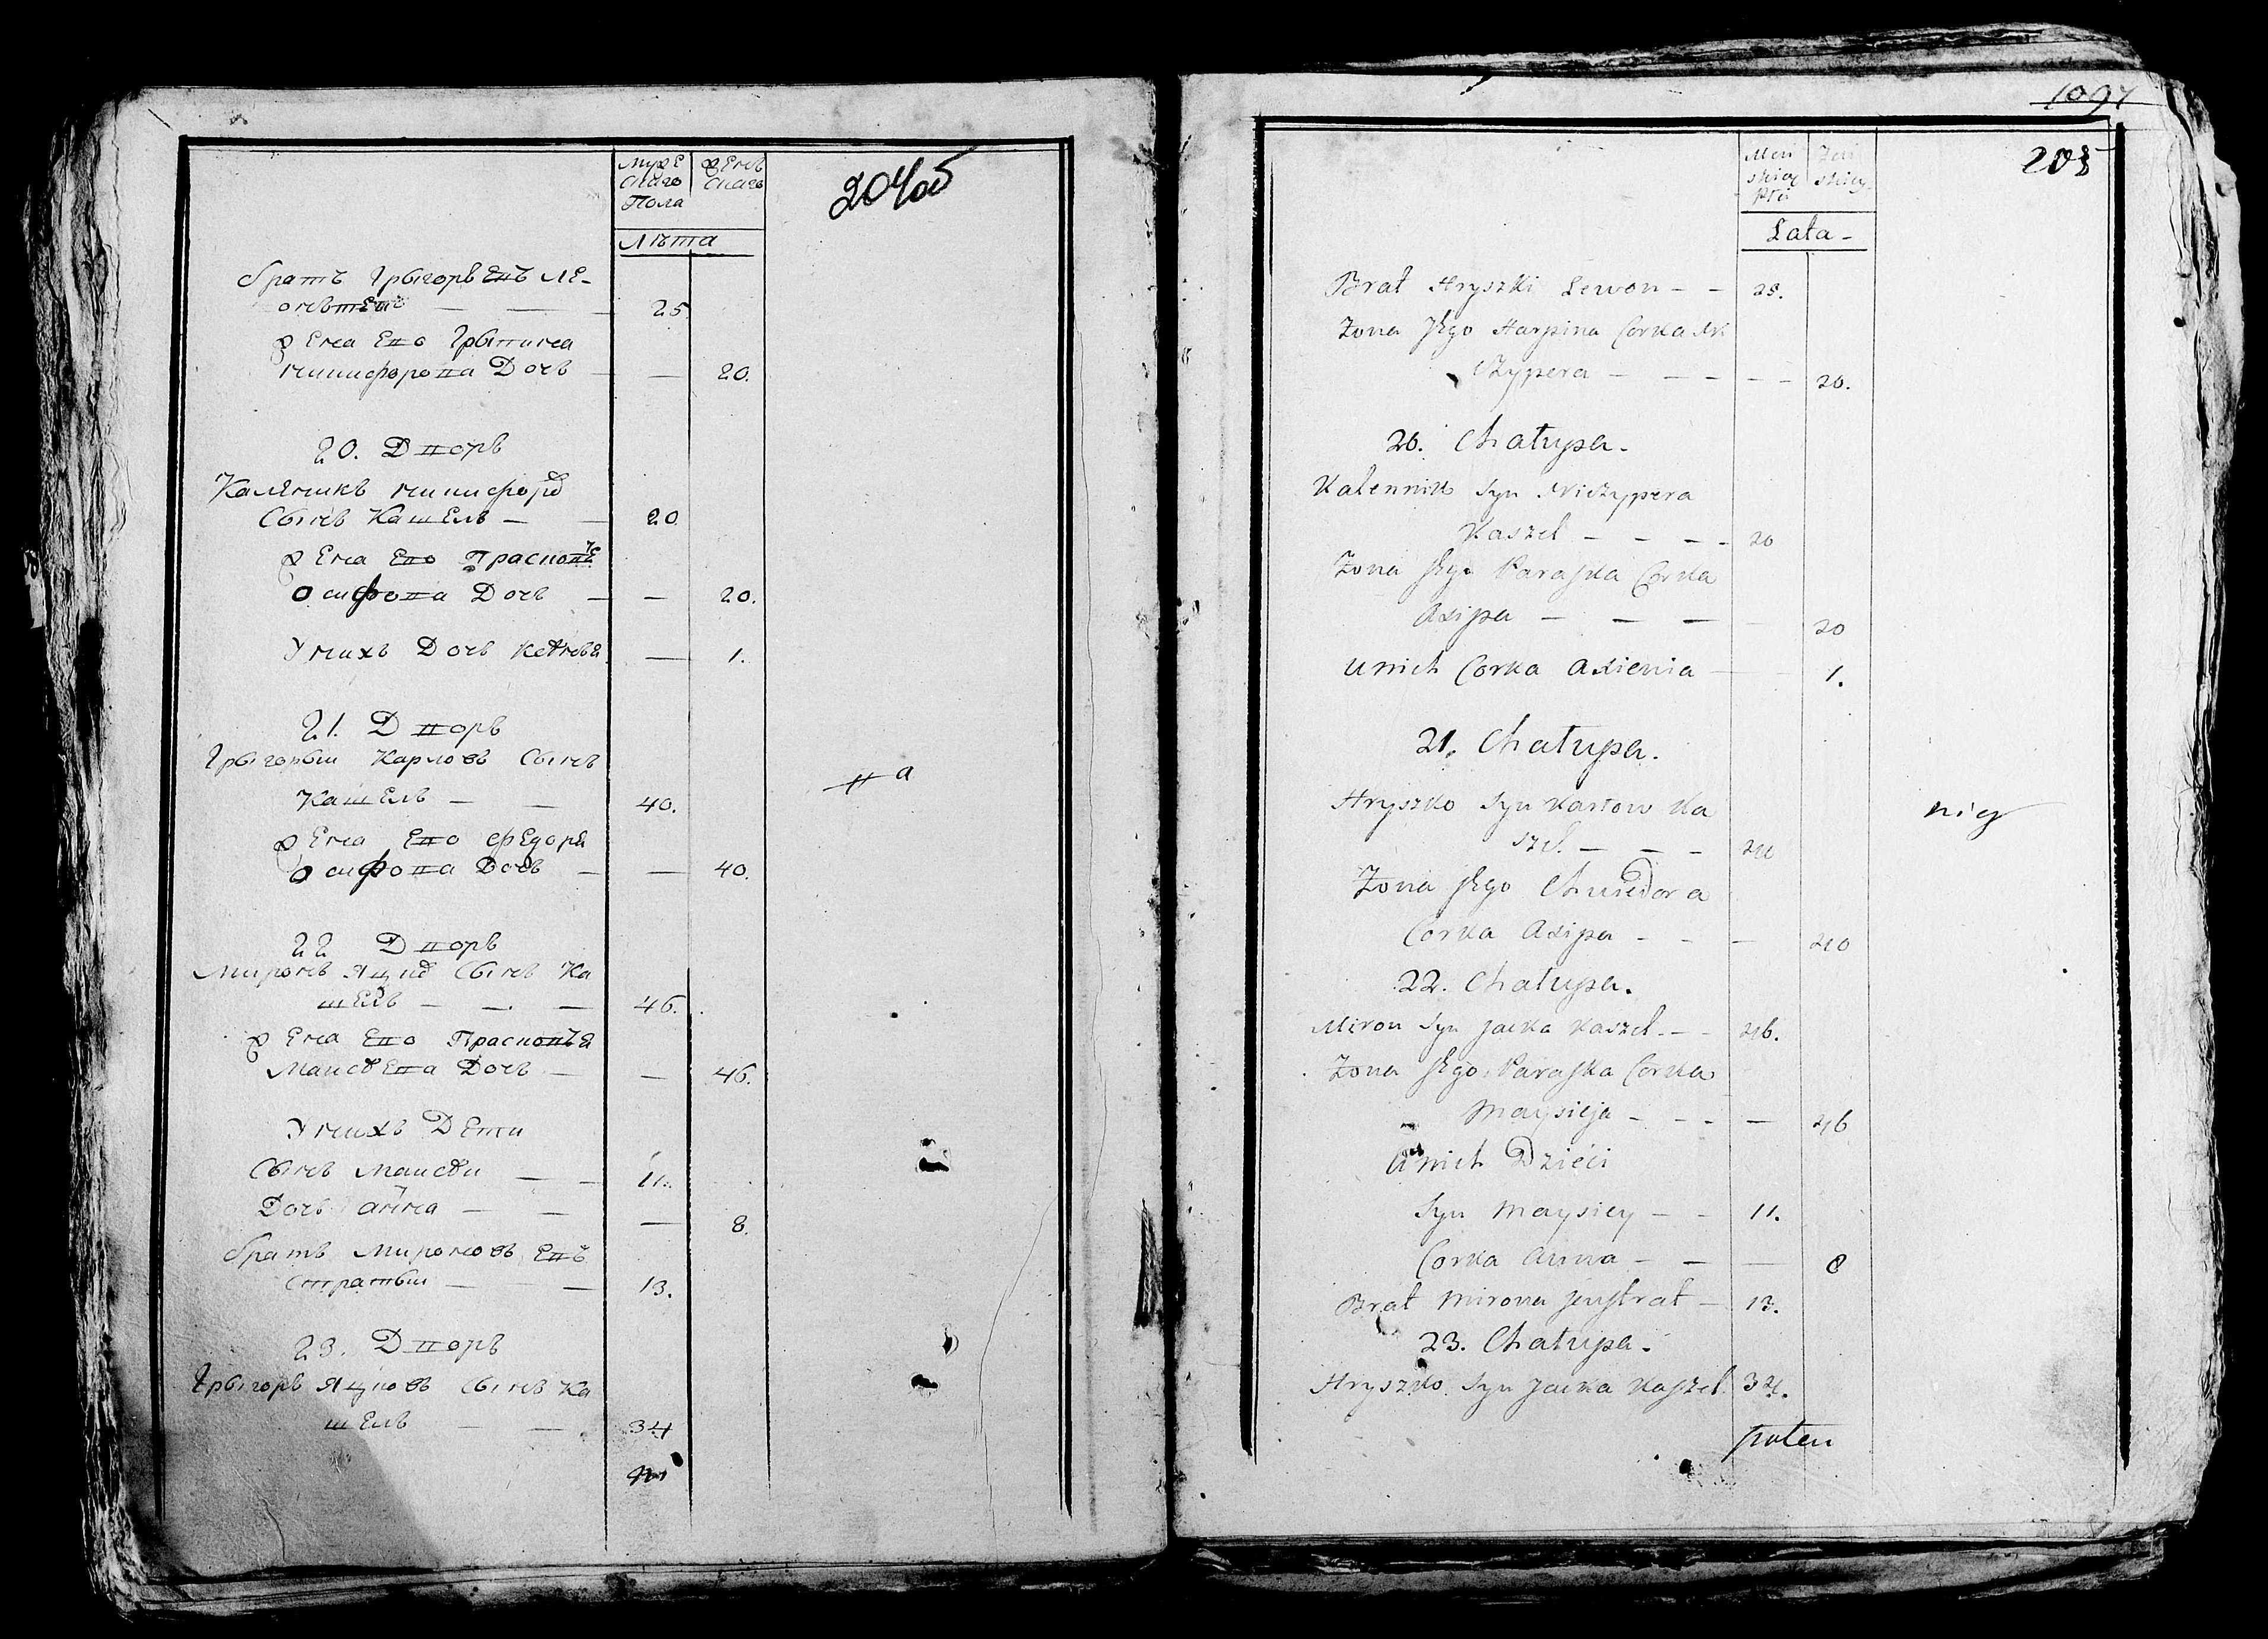 Муже
скаго
Женъ
скаго
Пола
204об
Лѣта
братъ Грыгоръевъ Ле-
онътеи — — 25
Жена Ево Грыпина
никифорова Дочь — — 20.
20. Дворъ
Каленикъ никифоръ
Сынъ Кашель — — 20
Жена Ево Прасковъя
осифова Дочь — — 20.
Унихъ Дочь — 1.
21. Дворъ
Грыгорыи Карповъ Сынъ
Кашель — — 40.
Жена Ево Федоря
осифова Дочь — — 40.
22 Дворъ
Миронъ Яцковъ Сынъ Ка
шель — — — 46.
Жена Ево Прасковъя
Моисеева Дочь — — 46.
Унихъ Дети
Сынъ Моисеи — — 11.
Дочь анна — — — 8.
братъ Мироновъ Евъ
стратыи — — 13.
23. Дворъ
Грыгоръ Яцковъ Сынъ Ка
шель — — 34
ва
1097
205
Męs
skiey
Płci
Żeń
skiey
Lata -
Brat Hryszki Lewon - - 25.
Żona Jego Harpina Corka Ni
czypera - - - - - 20.
20. Chałupa.
Kalennik Syn Niczypera
Kaszel - - - - 20
Zona Jego Paraska Corka
Asipa - - - - 20
u nich Corka Axienia - - 1.
21. Chałupa.
Hryszko Syn Karpow Ka
szel. - - - 40
Żona Jego Chwiedora
Corka Asipa - - - 40
22. Chałupa.
Miron Syn Jacka Kaszel - - 46.
Żona Jego Paraska Corka
Maysieja - - - - 46
u nich Dzieci
Syn Maysiey - - 11.
Corka Anna - - - 8
Brat Mirona Jeustrat - 13.
23. Chałupa.
Hryszko Syn Jacka Kaszel 34.